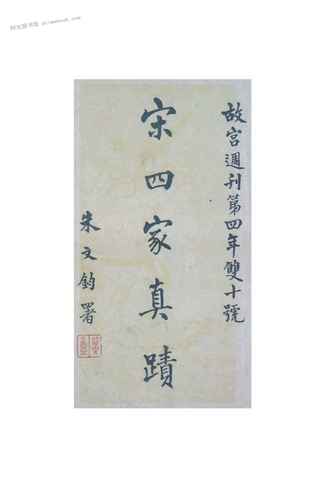 故宮週刊第四年雙十號
宋四家真蹟
朱文鈞署